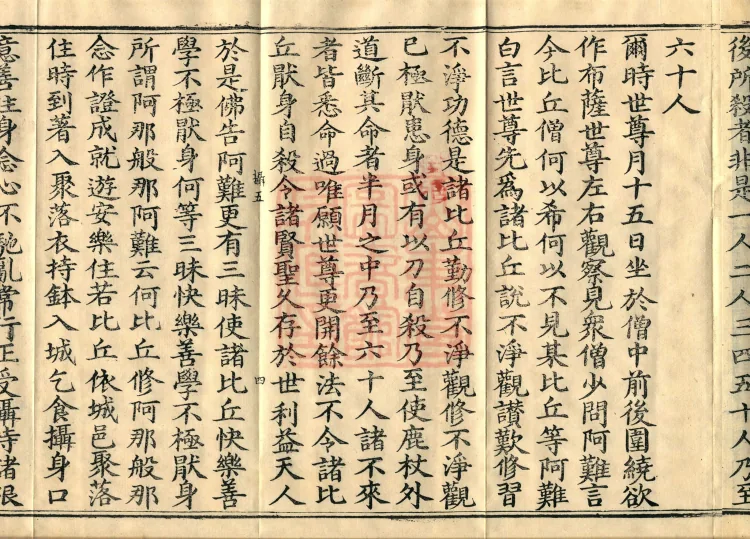 後所殺者非是一人二人三四五十人乃至
六十人
爾時世尊月十五日坐於僧中前後圍繞欲
作布薩世尊左右觀察見眾僧少問阿難言
今比丘僧何以希何以不見某比丘等阿難
白言世尊先爲諸比丘說不淨觀讃歎修習
不淨功德是諸比丘勤修不淨觀修不淨觀
已極厭患身或有以刀自殺乃至使鹿杖外
道斷其命者半月之中乃至六十人諸不來
者皆悉命過唯願世尊更開餘法不令諸比
丘厭身自殺令諸賢聖久存於世利益天人
攝五
四
於是佛告阿難更有三昧使諸比丘快樂善
學不極厭身何等三昧快樂善學不極厭身
所謂阿那般那阿難云何比丘修阿那般那
念作證成就遊安樂住若比丘依城邑聚落
住時到著入聚落衣持鉢入城乞食攝身口
意善住身念心不馳亂常行正受攝持諸根